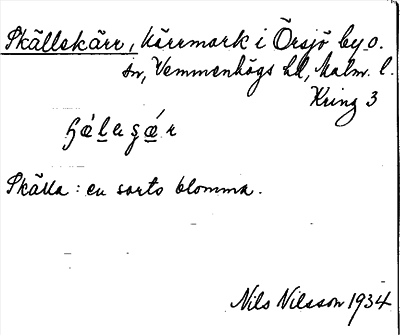 Skällekärr, kärrmark i Örsjö by o.
sn, Vemmenhögs hd, Malm. l.
Kring 3
Skälla : en sorts blomma.
Nils Nilsson 1934